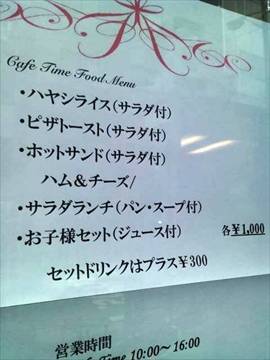 Cafe Time Food Menu
・ハヤシライス(サラダ付)
・ピザトースト(サラダ付)
・ホットサンド(サラダ付)
ハム&チーズ/
・サラダランチ(パン・スープ付)
・お子様セット(ジュース付) 各¥1,000
セットドリンクはプラス¥300
営業時間
Time 10:00~16:00